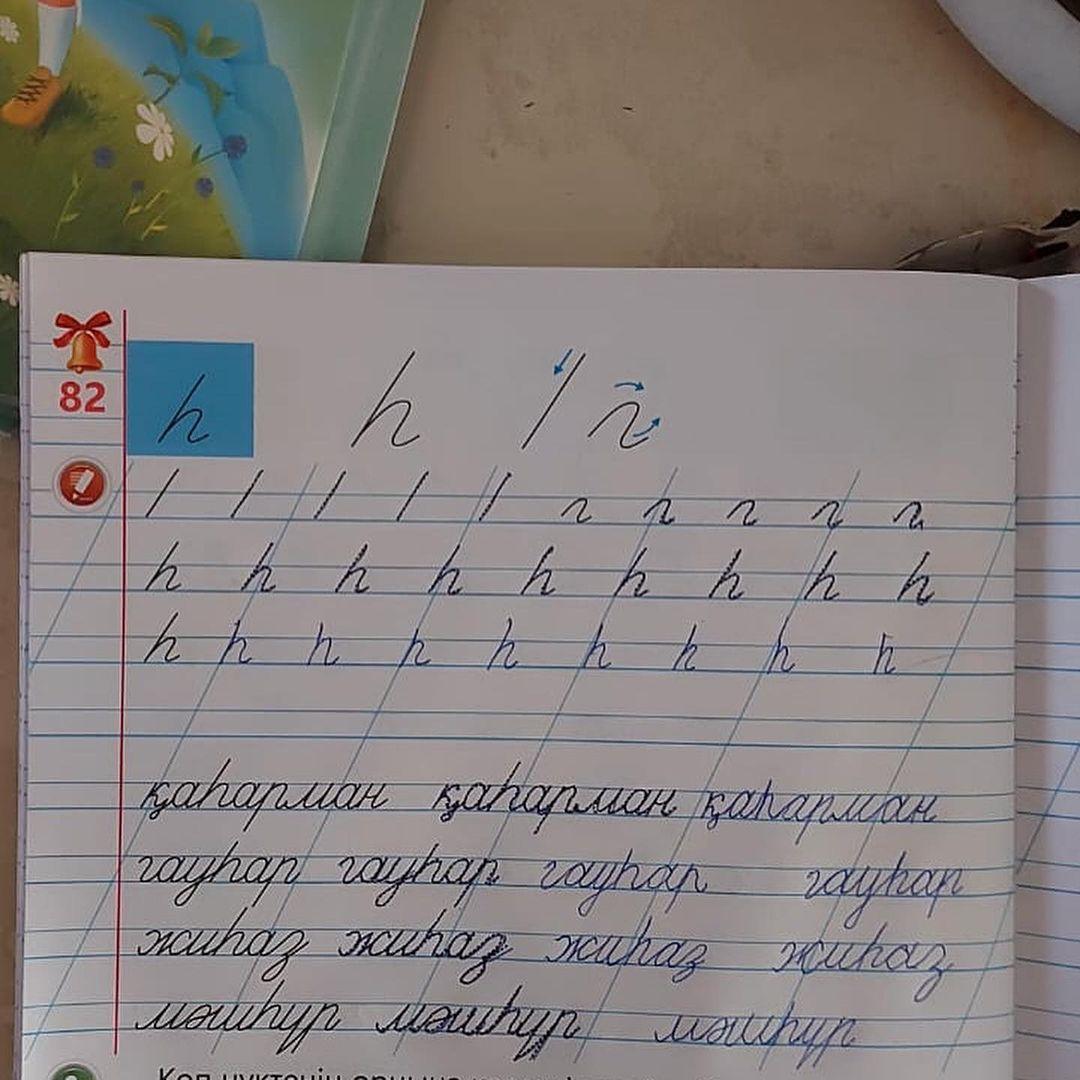 82
һ һ
һ һ һ һ һ һ һ һ һ
һ һ һ һ һ һ һ һ һ
қаһарман қаһарман қаһарман
гауһар гауһар гауһар гауһар
жиһаз жиһаз жиһаз жиһаз
мәшһүр мәшһүр мәшһүр
Көп нүктенің орнына